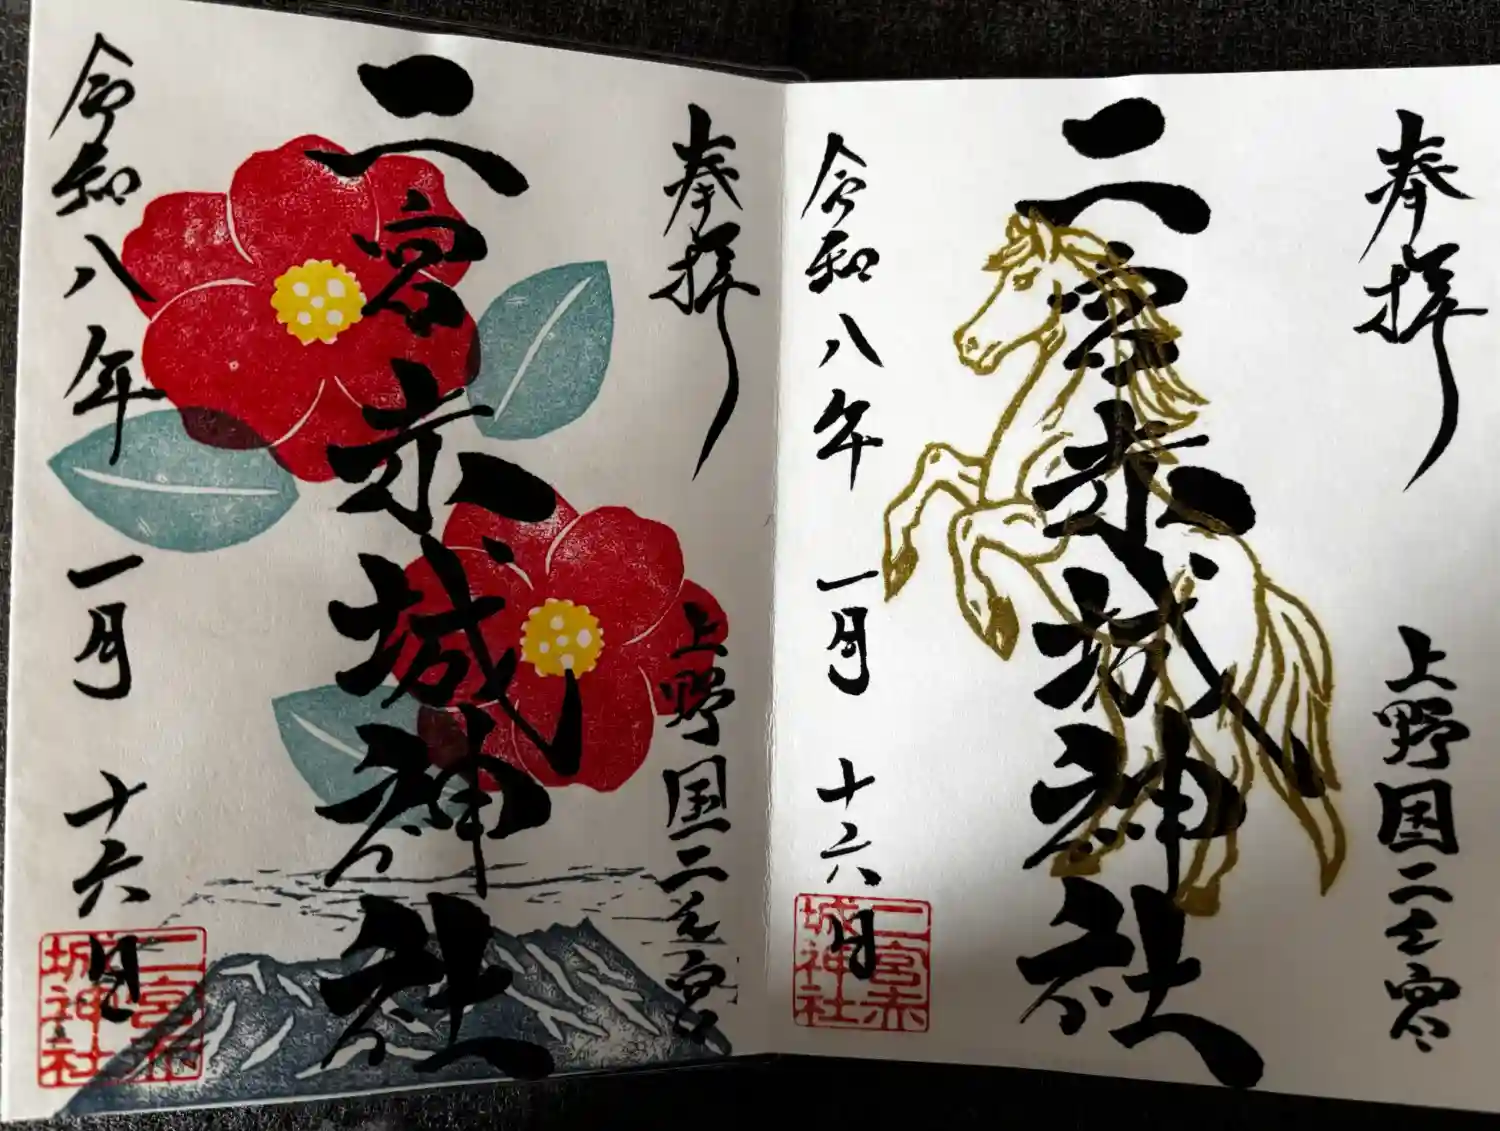 奉拝
上野国二之宮
二宮赤城神社
令和八年一月十六日
二宮赤
城神社
奉拝
上野国二之宮
二宮赤城神社
令和八年一月十六日
二宮赤
城神社